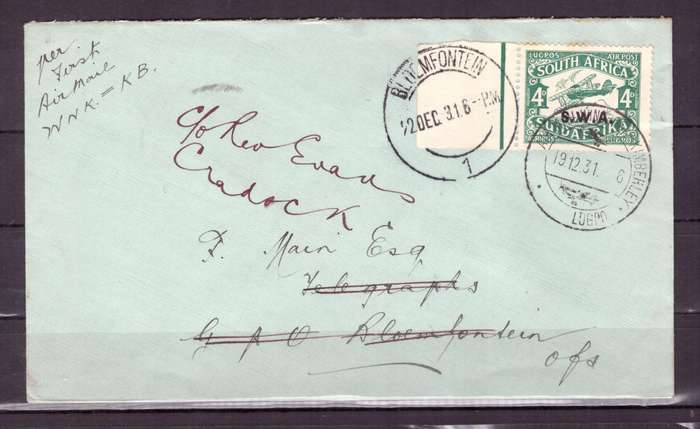 per
First
Air Mail
WNK. = KB.
BLOEMFONTEIN
DEC. 31. 6 - P.M.
1
LUGPOS AIR POST
SOUTH AFRICA
4D 4D
S.W.A.
SUIDAFRIKA
19.12.31. 6
KIMBERLEY
LUGPO
c/o Rev Evans
Cradock
F. Main Esq
Telegraphs
G P O Bloemfontein
ofs